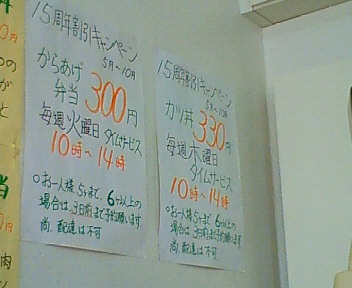 15周年割引キャンペーン
5月〜10月
からあげ
弁当 300円
毎週火曜日 タイムサービス
10時〜14時
○お一人様5ケまで、6ケ以上の
場合は、3日前まで予約願います
尚、配達は不可
15周年割引キャンペーン
5月〜10月
カツ丼 330円
毎週木曜日
タイムサービス
10時〜14時
○お一人様5ケまで、6ケ以上の
場合は、3日前まで予約願います
尚、配達は不可
円
の
が
と
当
円
肉